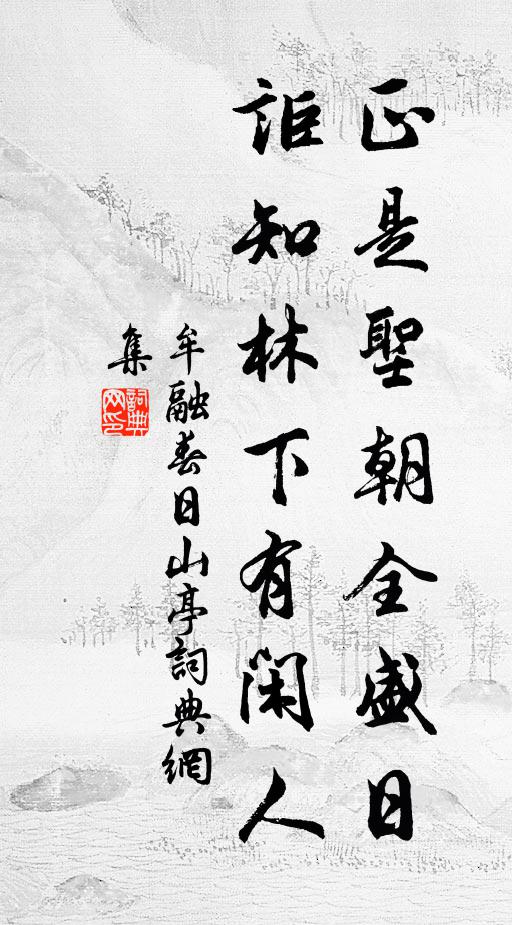 正是聖朝全盛日
詎知林下有閑人
牟融春日山亭詞典網
集
詞典
网印